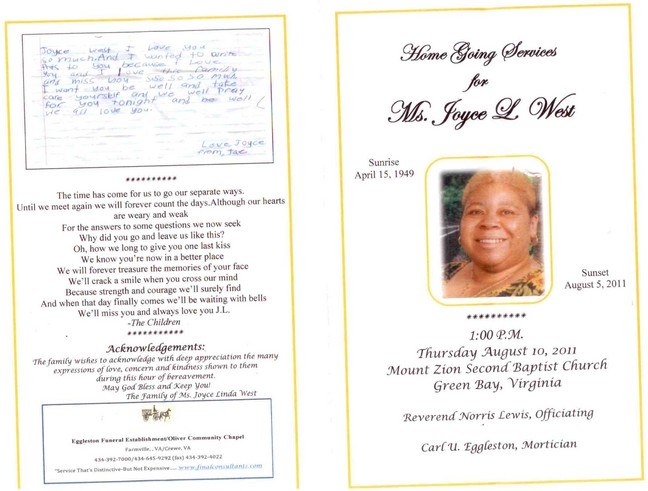 Joyce West I Love you
so much. And I wanted to
to you because I Love
you and I Love this family
and miss you SO SO SO SO much
I want you be well and take
care yourself and we well Pray
For you tonight and be well
we all love you.
Love, Joyce
**********
The time has come for us to go our separate ways.
Until we meet again we will forever count the days.Although our hearts
are weary and weak
For the answers to some questions we now seek
Why did you go and leave us like this?
Oh, how we long to give you one last kiss
We know you're now in a better place
We will forever treasure the memories of your face
We'll crack a smile when you cross our mind
Because strength and courage we'll surely find
And when that day finally comes we'll be waiting with bells
We'll miss you and always love you J.L.
-The Children
***********
Acknowledgements:
The family wishes to acknowledge with deep appreciation the many
expressions of love, concern and kindness shown to them
during this hour of bereavement.
May God Bless and Keep You!
The Family of Ms. Joyce Linda West
Eggleston Funeral Establishment/Oliver Community Chapel
Farmville., VA/Crewe, VA
434-392-7000/434-645-9292 [fax] 434-392-6022
"Service That's Distinctive-But Not Expensive.... www.finalconsultants.com
Home Going Services
for
Ms. Joyce L. West
Sunrise
April 15, 1949
Sunset
August 5, 2011
**********
1:00 P.M.
Thursday August 10, 2011
Mount Zion Second Baptist Church
Green Bay, Virginia
Reverend Norris Lewis, Officiating
Carl U. Eggleston, Mortician